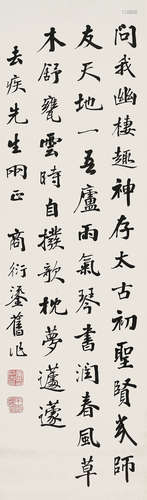 問我幽棲趣神存太古初聖賢為師
友天地一吾廬雨氣琴書潤春風草
木舒甕雲時自撥歌枕夢蘧蘧
去疾先生兩正　商衍鎏舊作